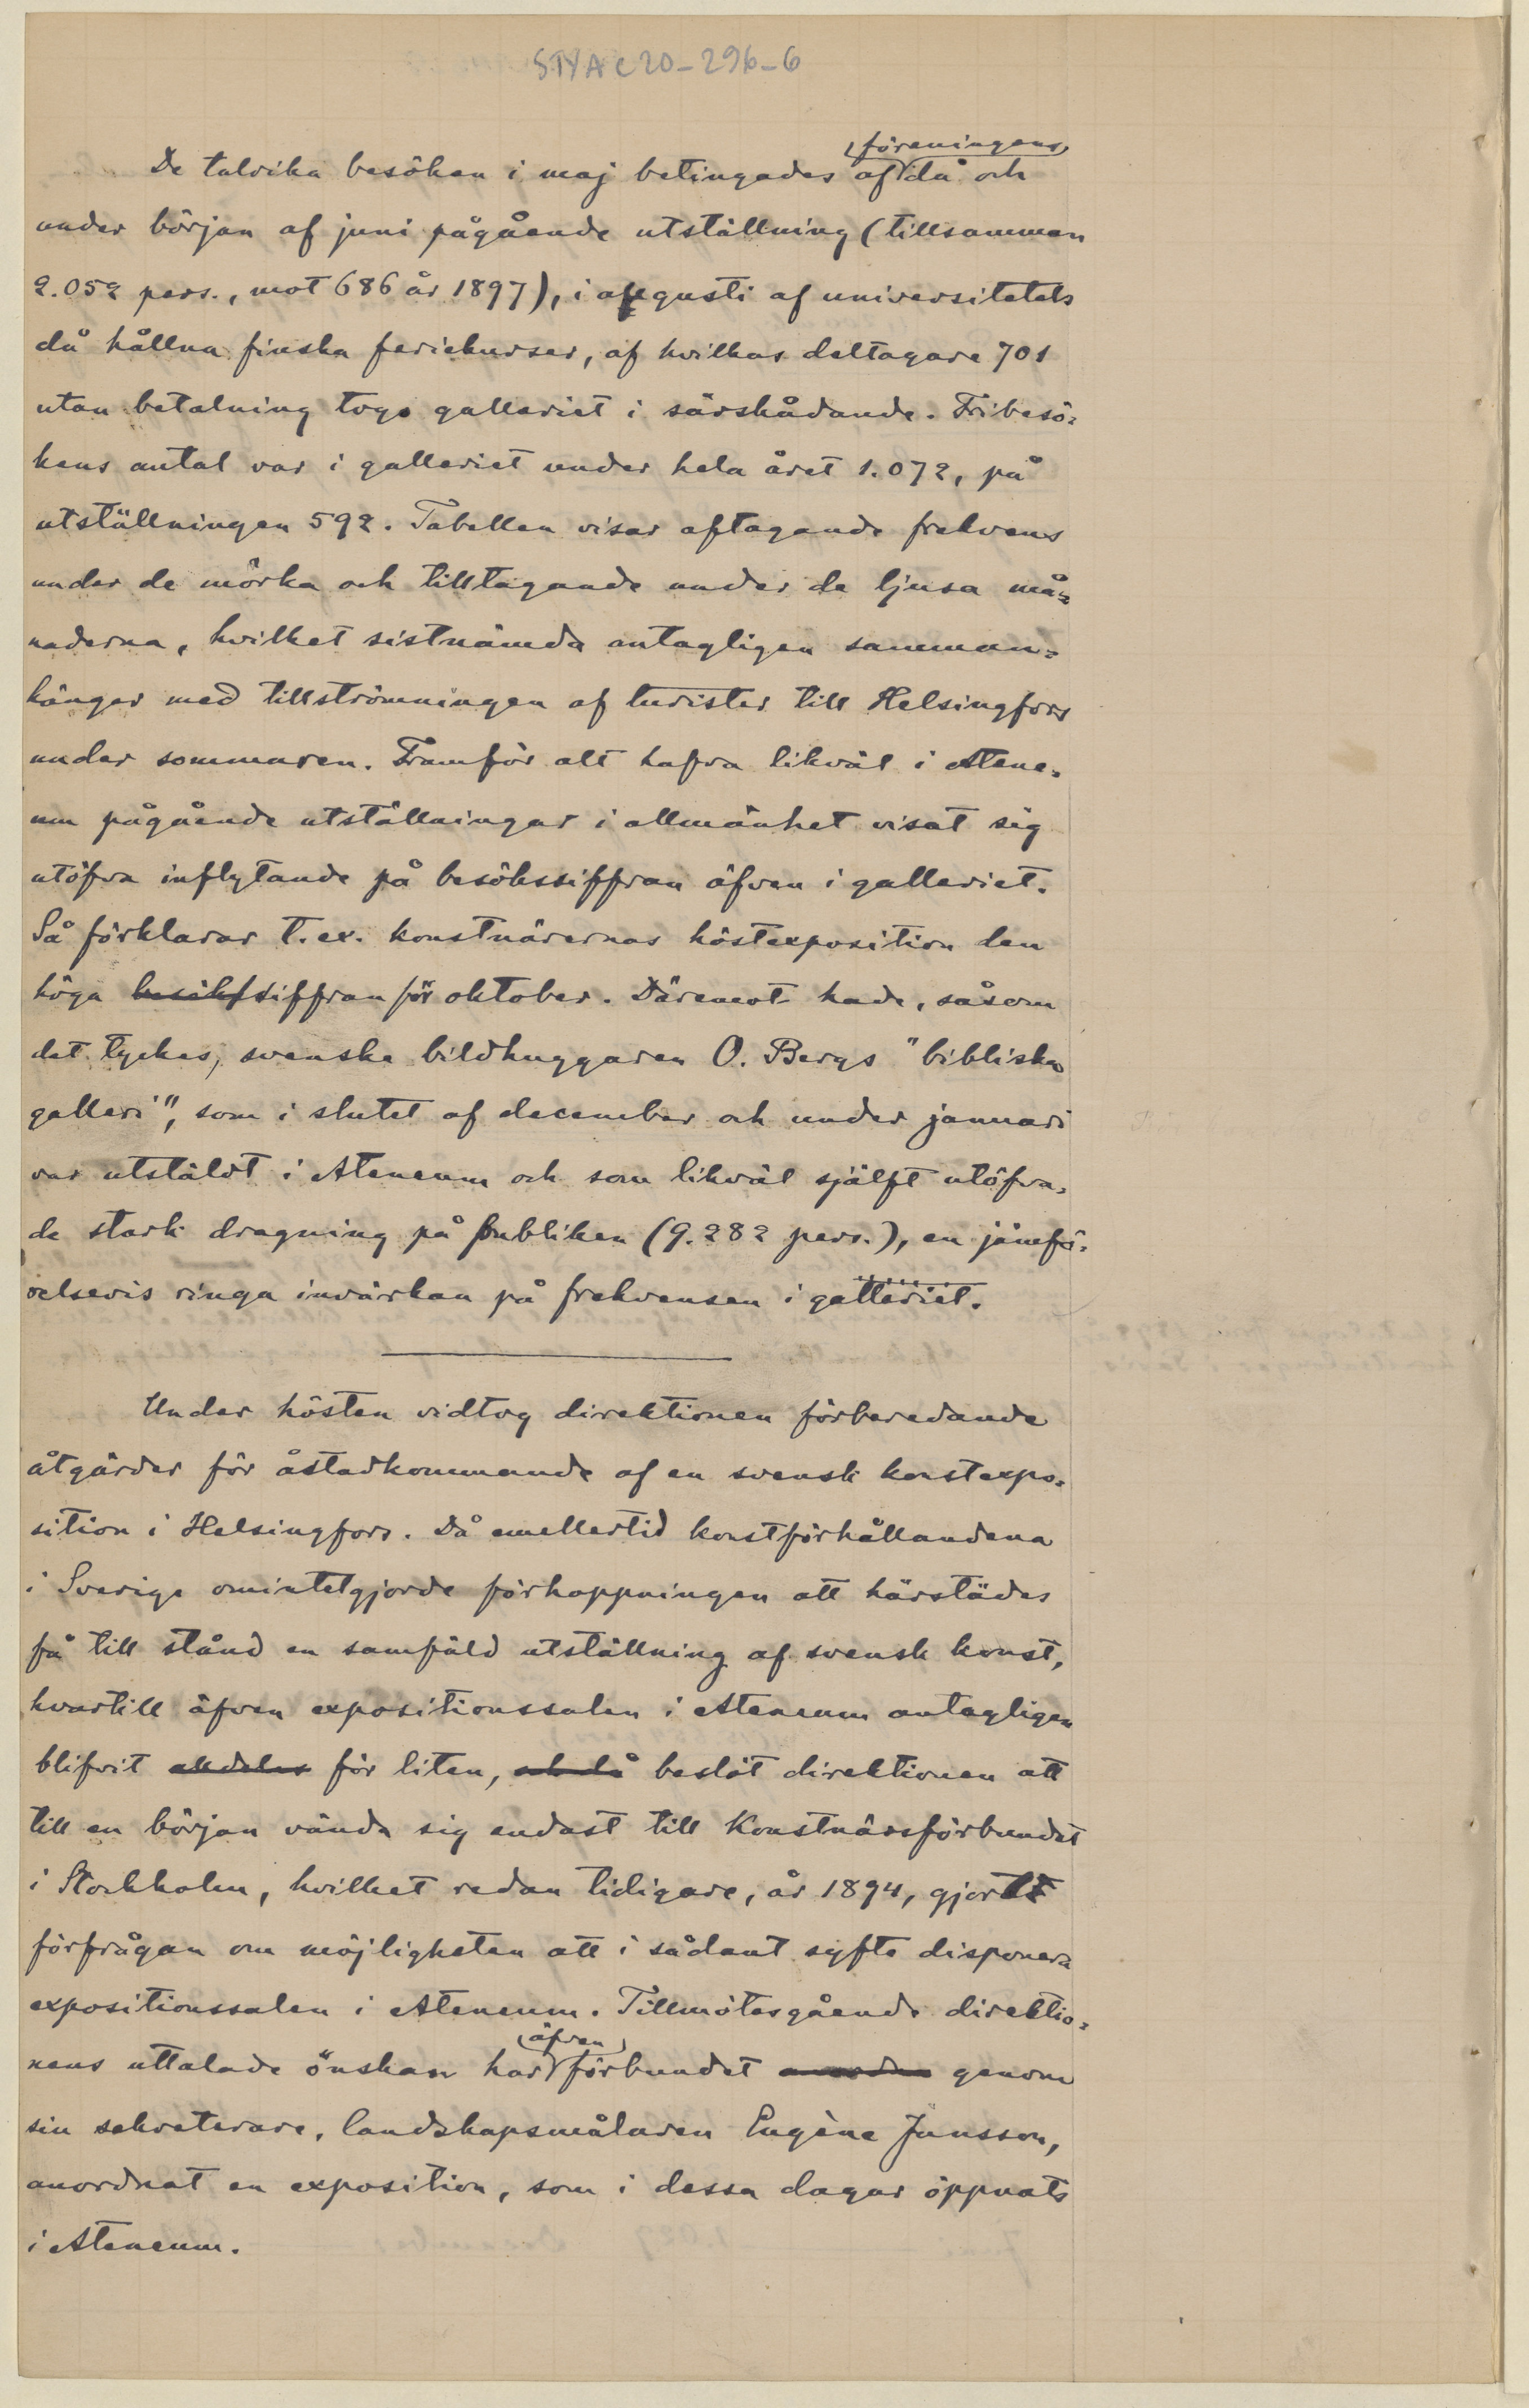 STYA C20-296-6
De talrika besöken i maj betingades af föreningens då och
under början af juni pågående utställning (tillsamman
2.052 pers., mot 686 år 1897), i augusti af universitetets
då hållna finska feriekurser, af hvilkas deltagare 701
utan betalning togo galleriet i särskådande. Fribesö-
kens antal var i galleriet under hela året 1.072, på
utställningen 592. Tabellen visar aftagande frekvens
under de mörka och tilltagande under de ljusa må-
naderna, hvilket sistnämda antagligen samman-
hänger med tillströmningen af turister till Helsingfors
under sommaren. Framför allt hafva likväl i Atene-
um pågående utställningar i allmänhet visat sig
utöfva inflytande på besökssiffran äfven i galleriet.
Så förklarar t.ex. konstnärernas höstexposition den
höga besökssiffran för oktober. Däremot hade, såsom
det tyckes, svenske bildhuggaren O. Bergs "bibliska
galleri", som i slutet af december och under januari
var utstäldt i Ateneum och som likväl själft utöfva-
de stark dragning på publiken (9.282 pers.), en jämfö-
relsevis ringa invärkan på frekvensen i galleriet.
Under hösten vidtog direktionen förberedande
åtgärder för åstadkommande af en svensk konstexpo-
sition i Helsingfors. Då emellertid konstförhållandena
i Sverige omintetgjorde förhoppningen att härstädes
få till stånd en samfäld utställning af svensk konst,
hvartill äfven expositionssalen i Ateneum antagligen
blifvit alldeles för liten, och då beslöt direktionen att
till en början vända sig endast till Konstnärsförbundet
i Stockholm, hvilket redan tidigare, år 1894, gjort
förfrågan om möjligheten att i sådant syfte disponera
expositionssalen i Ateneum. Tillmötesgående direktio-
nens uttalade önskan har äfven förbundet genom
sin sekreterare, landskapsmålaren Eugène Jansson,
anordnat en exposition, som i dessa dagar öppnats
i Ateneum.